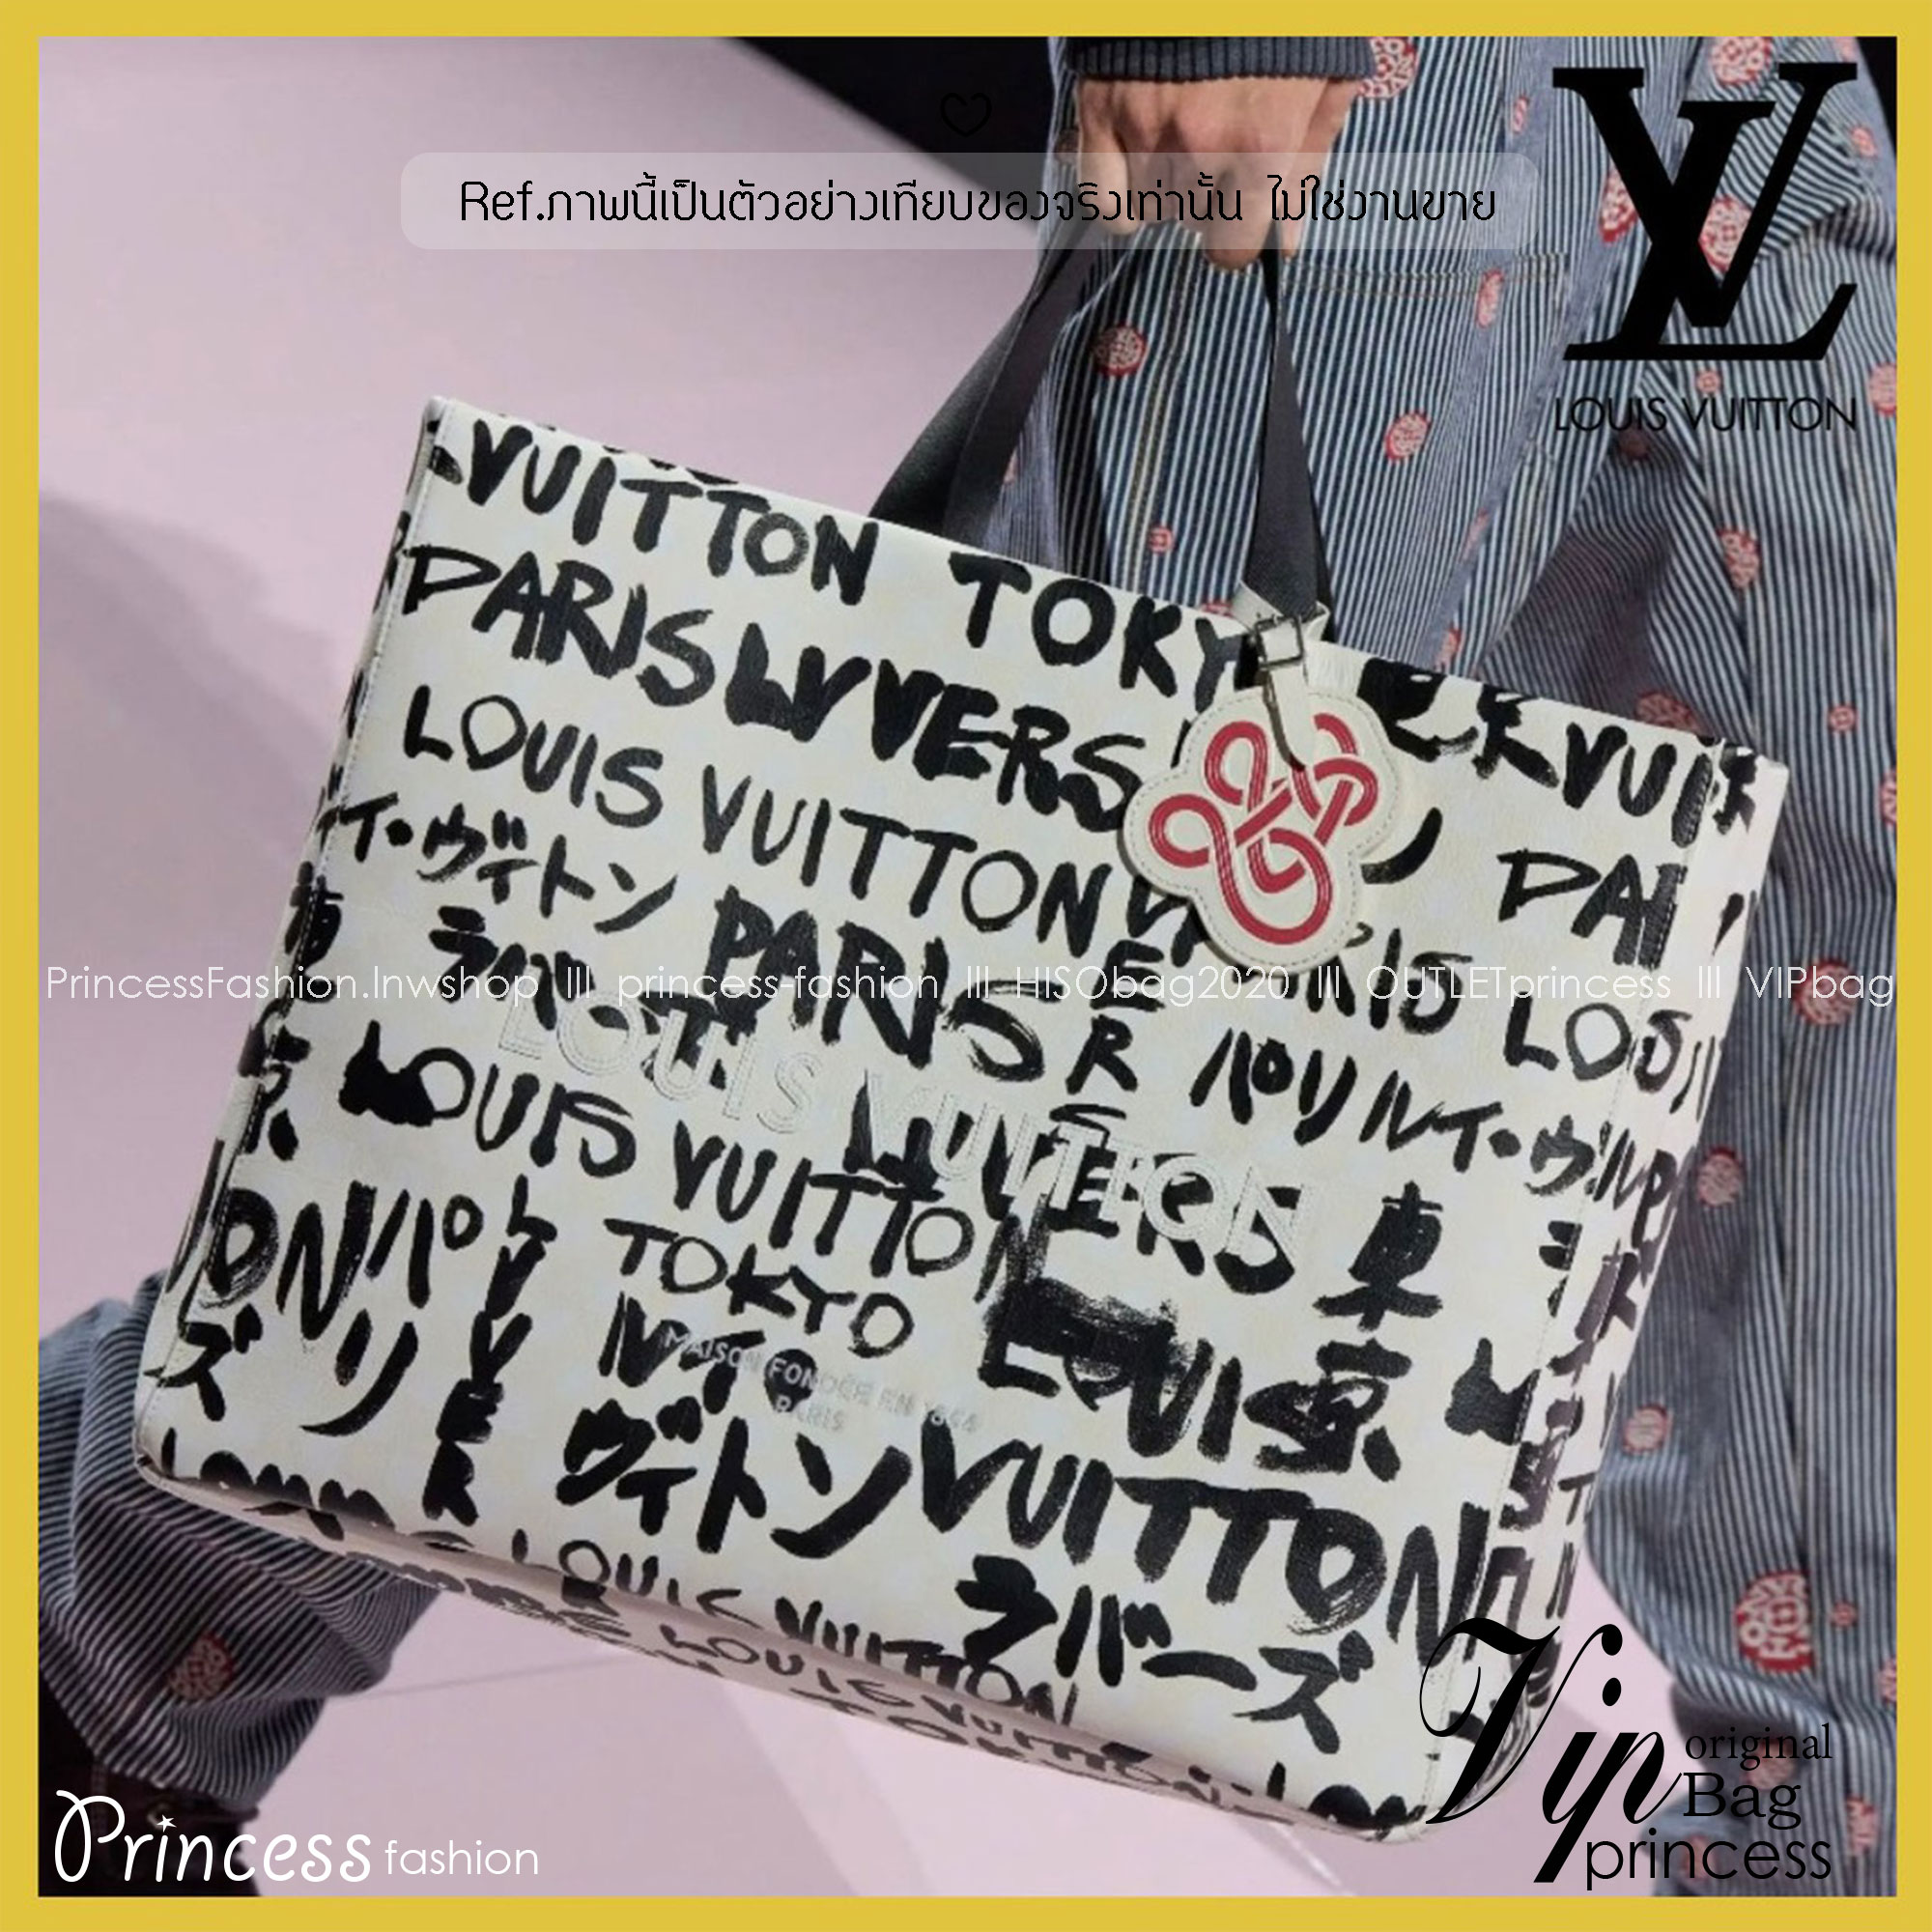 Ref.ภาพนี้เป็นตัวอย่างเทียบของจริงเท่านั้น ไม่ใช่งานขาย
LV
LOUIS VUITTON
VUITTON TOKY VUIT
PARIS LVERS PAR
LOUIS VUITTON VERS PARIS LOUIS
イ・ヴィトン PARIS パリ ルイ・ヴィ
ラバーズ
LOUIS VUITTON
LOUIS VUITTON LVERS 東京
ON パリ LVER TOKYO LOUIS
ズ ルイ・
MAISON FONDÉE EN 1854
PARIS
ヴィトン VUITTON
LOUIS VUITTON ラバーズ
LOUIS VUITTON
PrincessFashion.lnwshop lll princess-fashion lll HISObag2020 lll OUTLETprincess lll VIPbag
Princess fashion
Vip original
Bag
princess